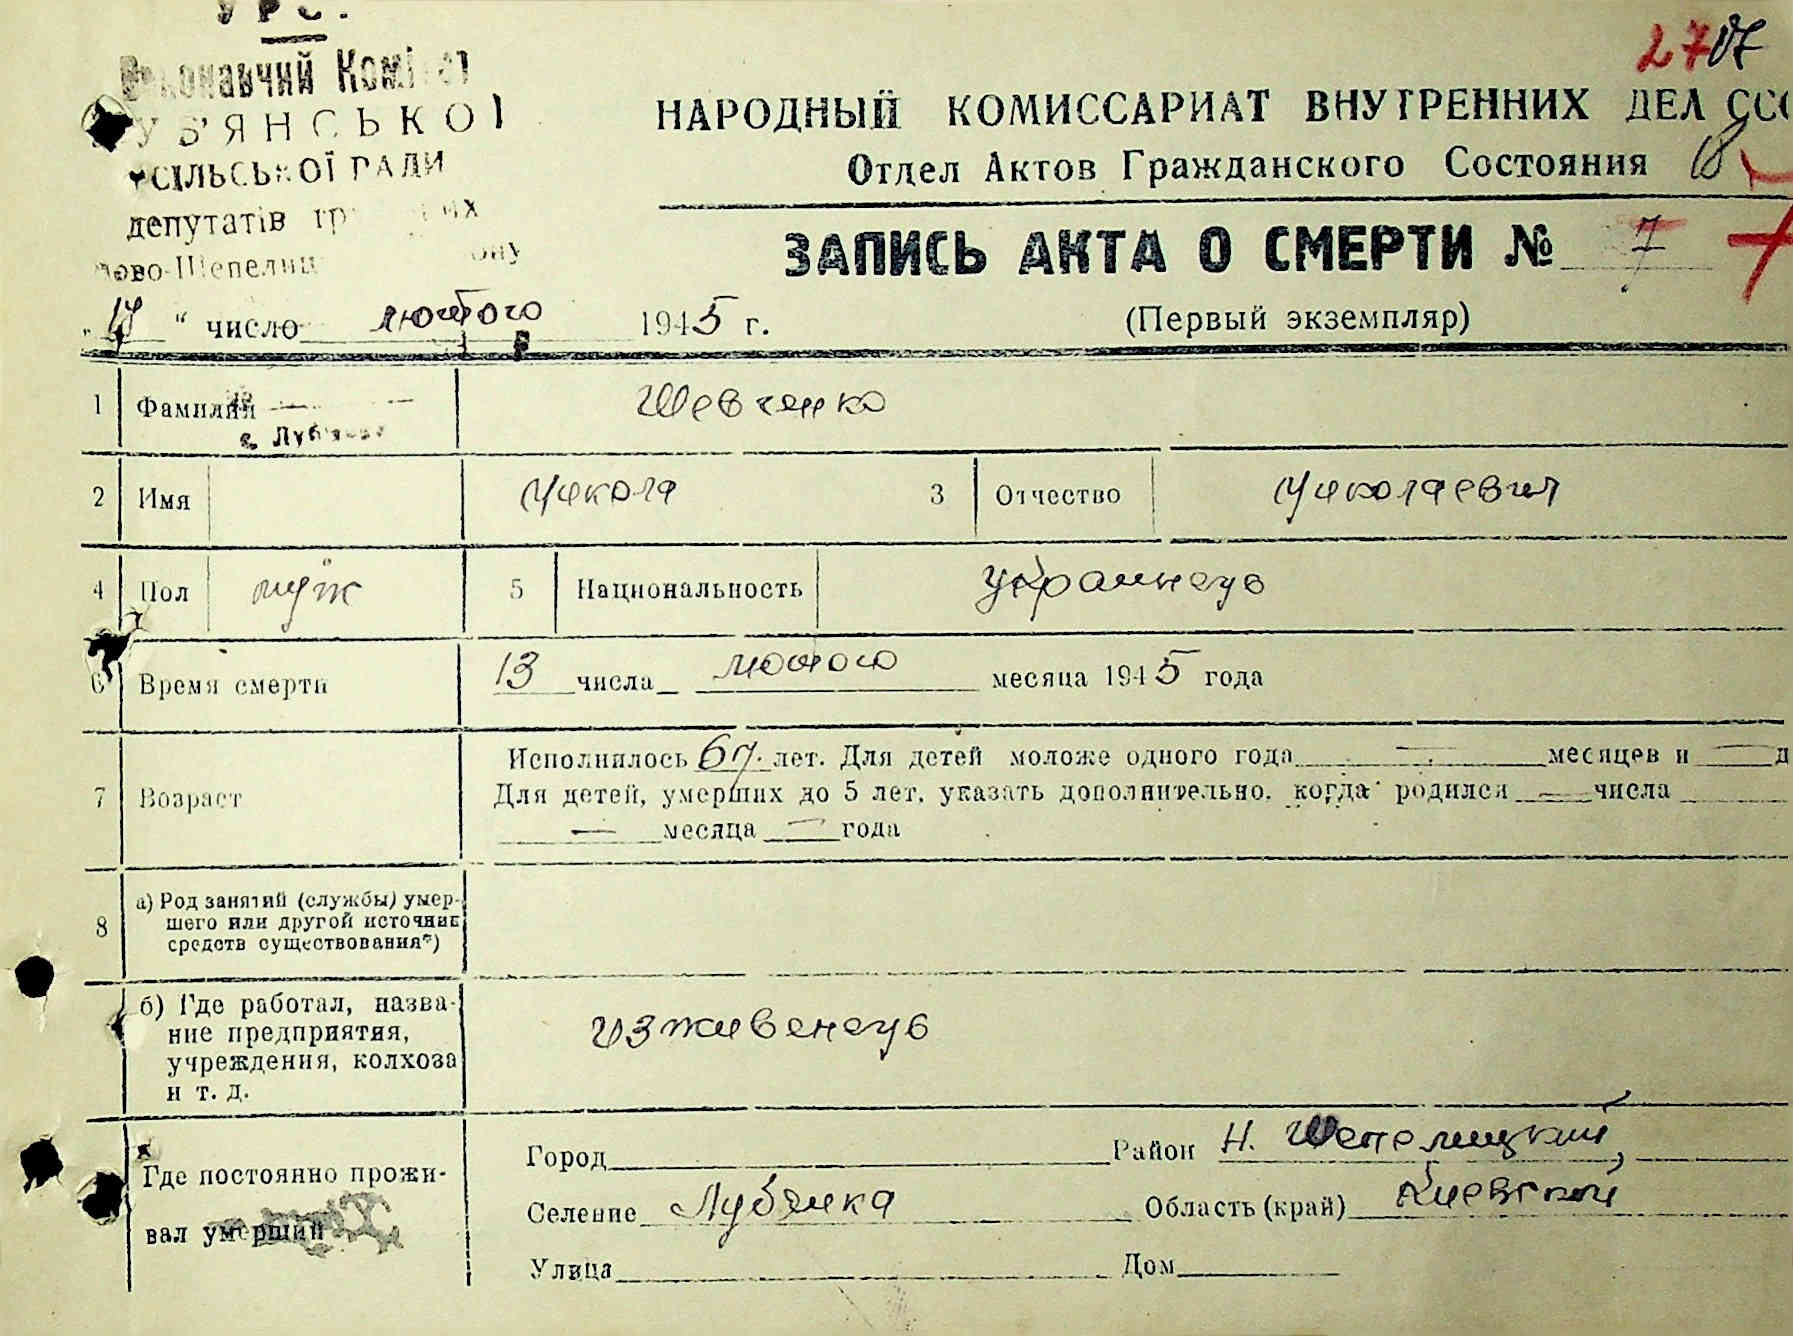 УРС.
Виконавчий Комітет
ЛУБ'ЯНСЬКОЇ
СІЛЬСЬКОЇ РАДИ
депутатів
Ново-Шепелиц
2707
НАРОДНЫЙ КОМИССАРИАТ ВНУТРЕННИХ ДЕЛ ССС
Отдел Актов Гражданского Состояния 18
ЗАПИСЬ АКТА О СМЕРТИ № 7
(Первый экземпляр)
„ 17 “ число лютого 1945 г.
1 Фамилия Шевченко
с. Луб'янка
2 Имя Микола 3 Отчество Миколаевич
4 Пол муж 5 Национальность украинець
6 Время смерти 13 числа лютого месяца 1945 года
7 Возраст Исполнилось 67 лет. Для детей моложе одного года — месяцев и — д
Для детей, умерших до 5 лет, указать дополнительно, когда родился — числа
— месяца — года
8 а) Род занятий (службы) умер-
шего или другой источник
средств существования*)
б) Где работал, назва-
ние предприятия,
учреждения, колхоза
и т. д.
изживенець
Где постоянно прожи-
вал умерший
Город Район Н. Шепелицкий,
Селение Лубянка Область (край) Киевской
Улица Дом